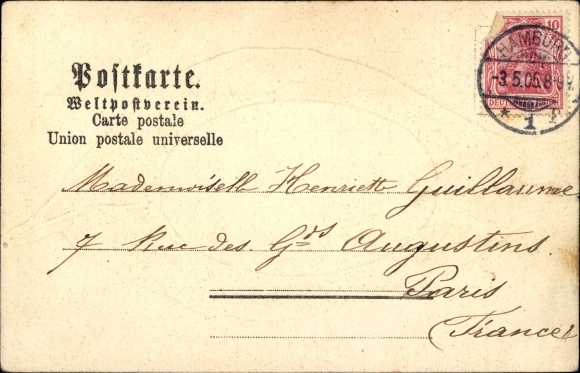 Postkarte.
Weltpostverein.
Carte postale
Union postale universelle
10
HAMBURG
-3.5.05.8-9
* 1
Mademoiselle Henriette Guillaume
7 Rue des Gds Augustins.
Paris
France